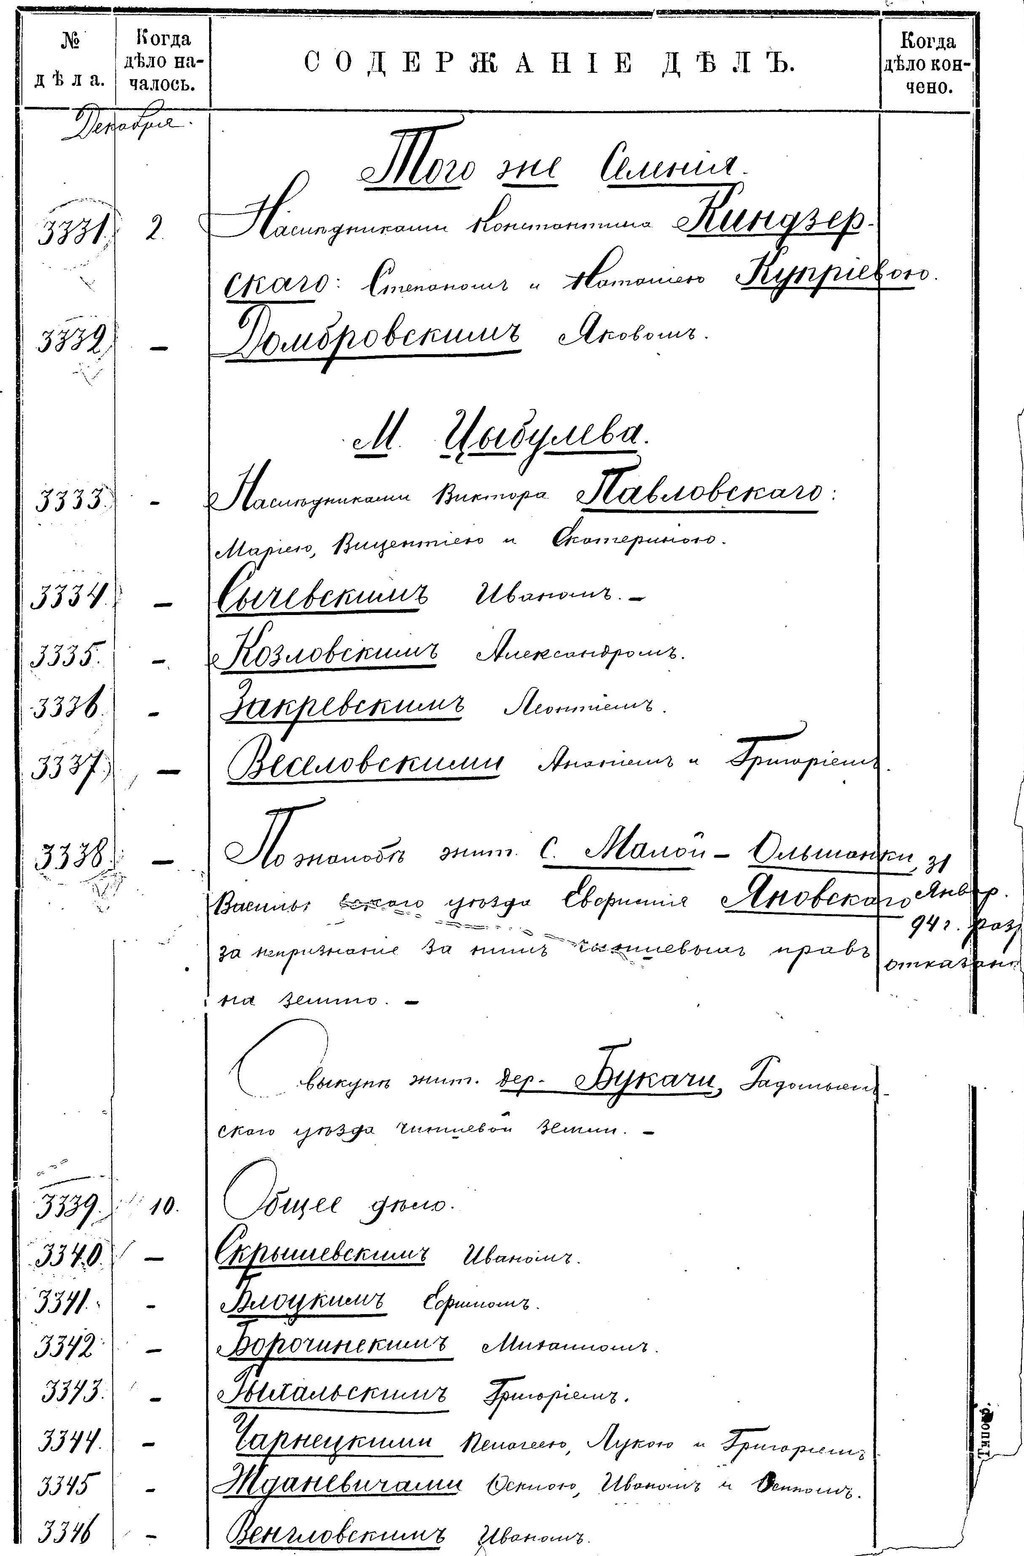 № дѣла.
Когда дѣло началось.
СОДЕРЖАНІЕ ДѢЛЪ.
Когда дѣло кончено.
Декабря.
Того же Селенія.
3331. 2. Наслѣдниками Константина Киндзер-
скаго: Степаномъ и Наталіею Купріевою.
3332 — Домбровскимъ Яковомъ.
М. Цыбулева.
3333. - Наслѣдниками Виктора Павловскаго:
Маріею, Вицентіею и Екатериною.
3334. — Сычевскимъ Иваномъ. —
3335. - Козловскимъ Александромъ.
3336. - Закревскимъ Леонтіемъ.
3337. — Веселовскими Ананіемъ и Григоріемъ.
3338. — По жалобѣ жит. с. Малой-Ольшанки, 31
Василь уѣзда Евфимія Яновскаго Январ.
94 г. раз
за непризнаніе за нимъ чиншевыхъ правъ отказано
на землю. —
О выкупѣ жит. дер. Букачи, Радомысль-
скаго уѣзда чиншевой земли. —
3339. 10. Общее дѣло.
3340. — Скрышевскимъ Иваномъ.
3341. - Блоцкимъ Ефимомъ.
3342 - Борочинскимъ Михаиломъ.
3343. - Рыхальскимъ Григоріемъ.
3344. - Чарнецкими Пелагеею, Лукою и Григоріемъ
3345 - Жданевичами Иваномъ и Осипомъ.
3346 - Венгловскимъ Иваномъ.